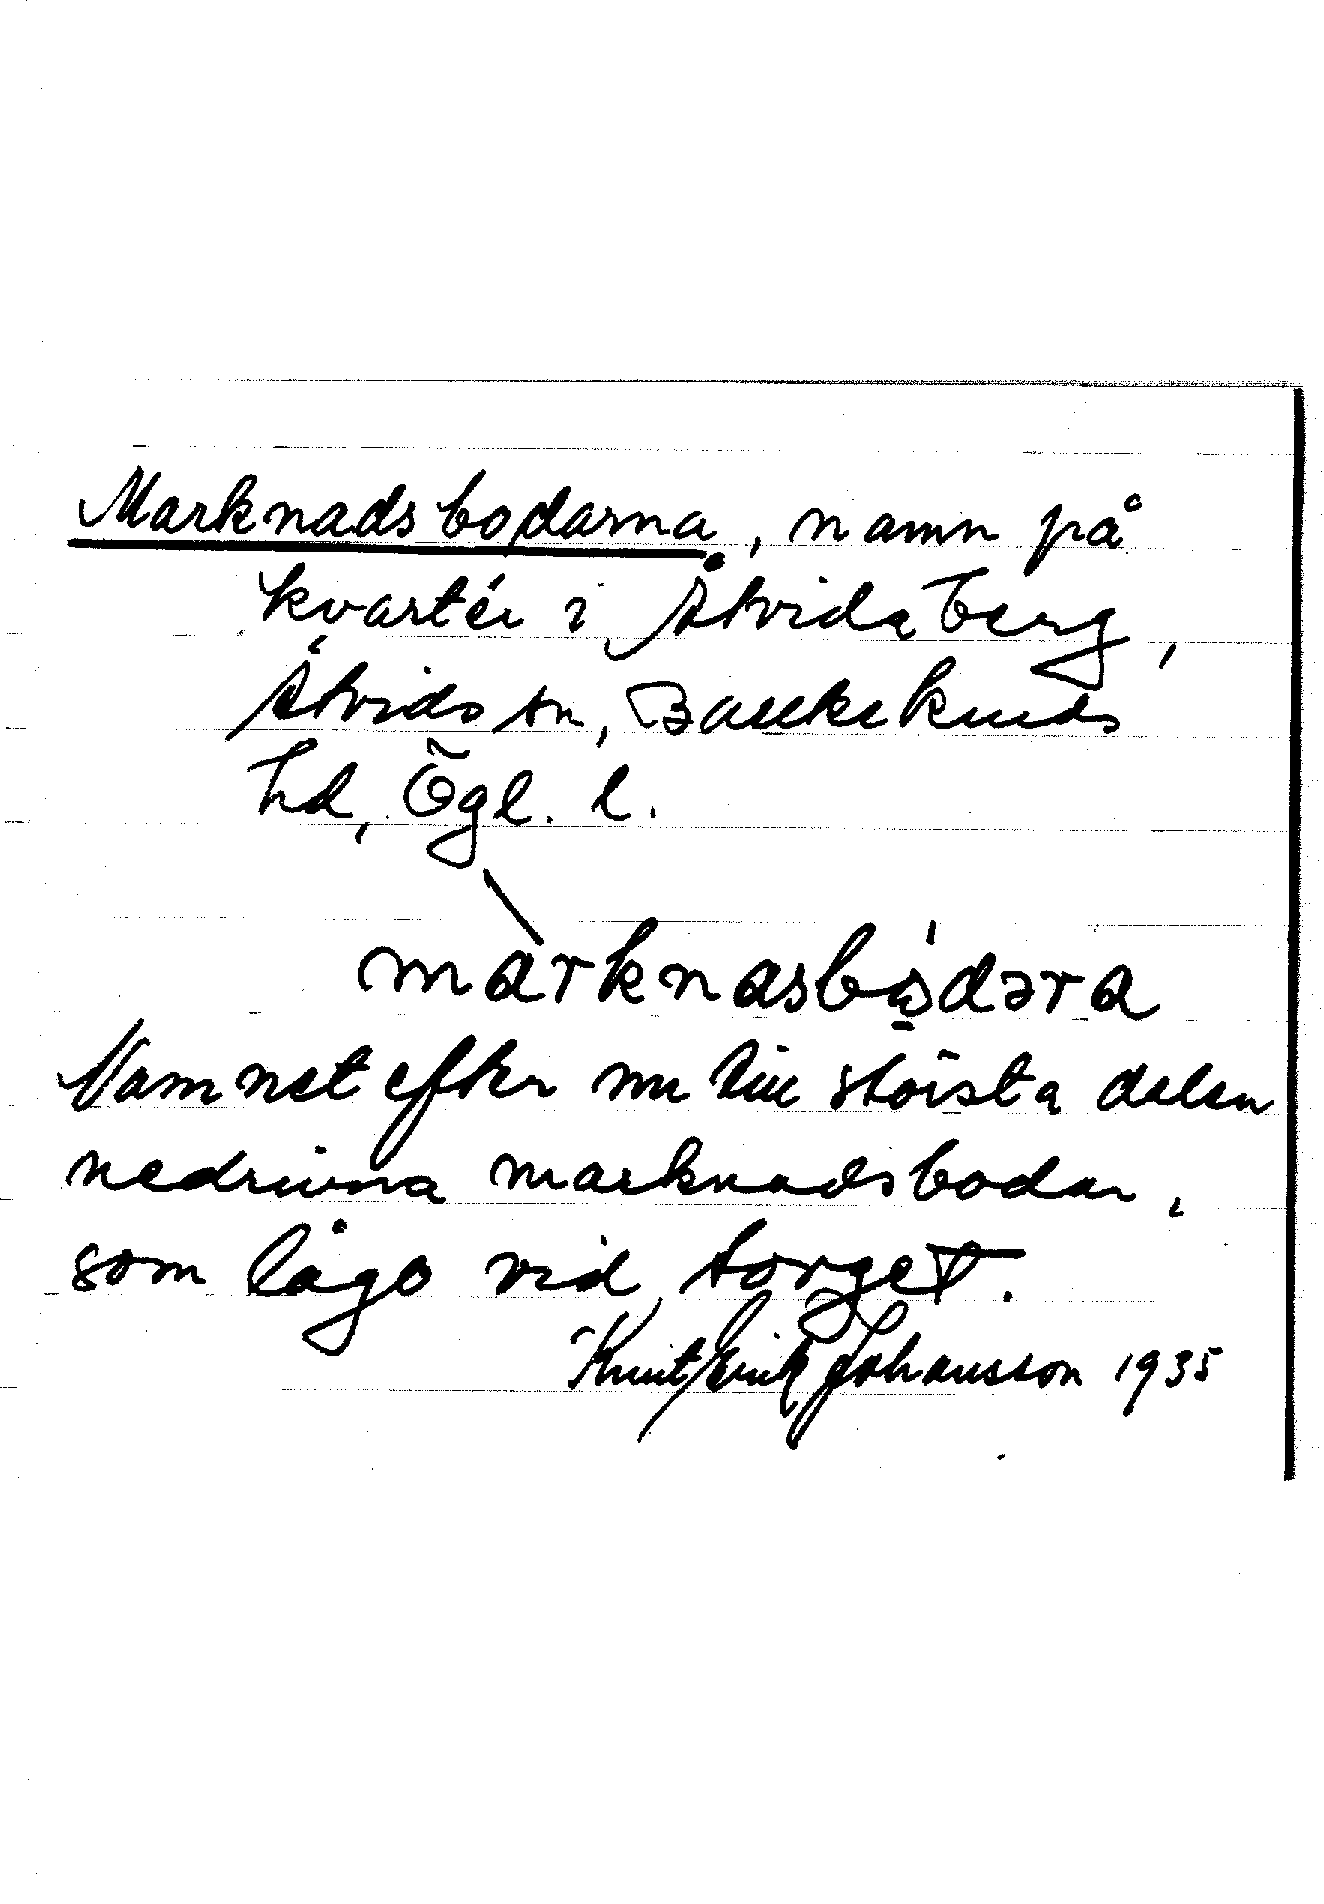 Marknadsbodarna, namn på
kvartér i Åtvidaberg,
Åtvids sn, Bankekinds
hd, Ögl. l.
màrknasbódəra
Namnet efter nu till största delen
nedrivna marknadsbodar,
som lågo vid torget.
Knut Erik Johansson 1935